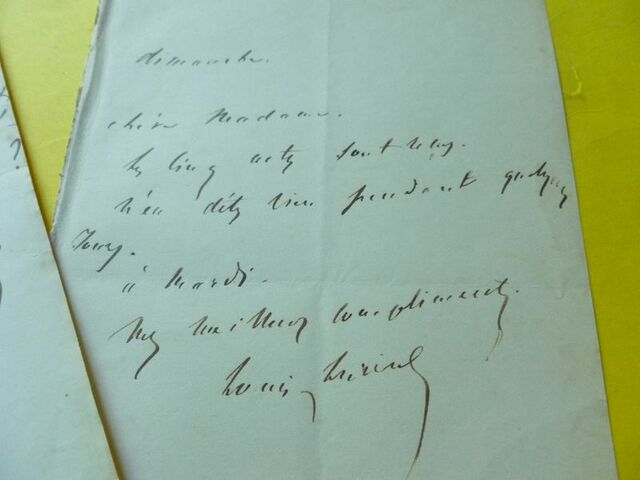 dimanche.
chère Madame.
les cinq actes sont reçus.
n'en dites rien pendant quelques
jours.
à mardi.
Mes meilleurs compliments.
Louis